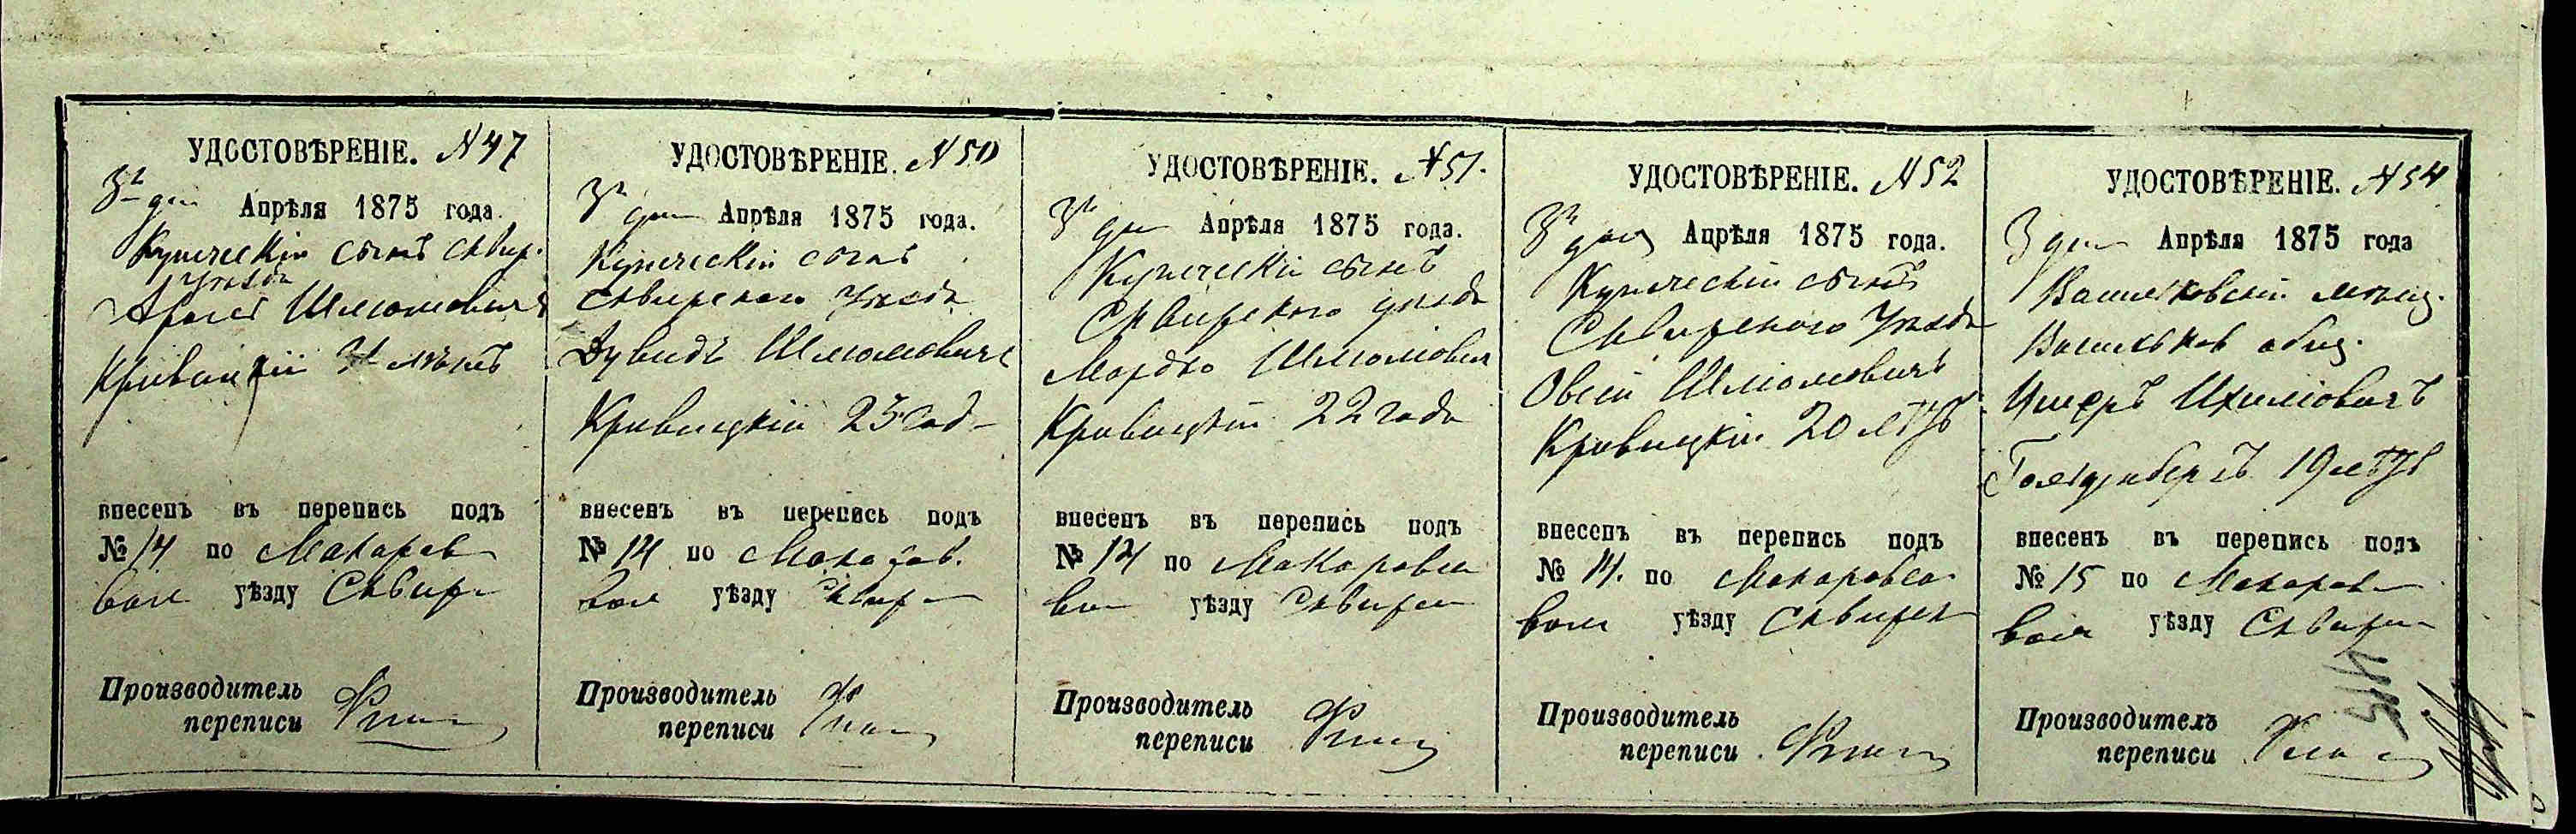 УДОСТОВѢРЕНІЕ. N 47
3го дня Апрѣля 1875 года.
Купеческій сынъ Сквир.
уѣзда
Шлюмовичъ
Кривицкій лѣтъ
внесенъ въ перепись подъ
№ 14 по Макаров
вол уѣзду Сквир
Производитель
переписи
УДОСТОВѢРЕНІЕ. N 50
3го дня Апрѣля 1875 года.
Купеческій сынъ
Сквирскаго Уѣзда
Дувидъ Шлюмовичъ
Кривицкій 23 год
внесенъ въ перепись подъ
№ 14 по Макаров.
вол уѣзду Сквир
Производитель
переписи
УДОСТОВѢРЕНІЕ. N 51.
3го дня Апрѣля 1875 года.
Купеческій сынъ
Сквирского уѣзда
Мордко Шлюмович
Кривицкій 22 года
внесенъ въ перепись подъ
№ 14 по Макаровск
вол уѣзду Сквирск
Производитель
переписи
УДОСТОВѢРЕНІЕ. N 52
3го дня Апрѣля 1875 года.
Купеческій сынъ
Сквирского Уѣзда
Овсій Шлюмовичъ
Кривицкій 20 лѣтъ
внесенъ въ перепись подъ
№ 14. по Макаровск
вол уѣзду Сквирск
Производитель
переписи
УДОСТОВѢРЕНІЕ. N 54
3 дня Апрѣля 1875 года
Васильковскій мѣщ.
Васильков общ.
Ушеръ Ихиловичъ
Голденбергъ 19 лѣтъ
внесенъ въ перепись подъ
№ 15 по Макаров
вол уѣзду Сквир
Производитель
переписи